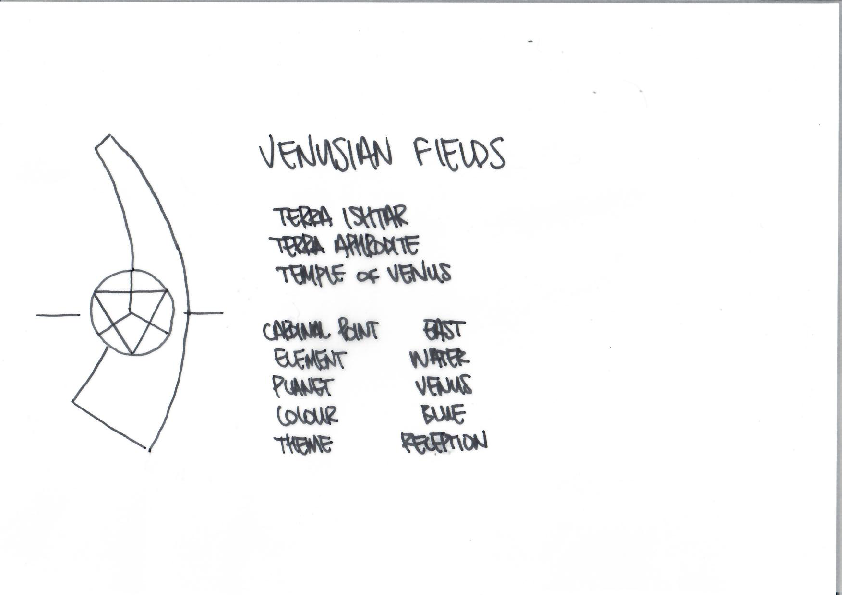 VENUSIAN FIELDS
TERRA ISHTAR
TERRA APHRODITE
TEMPLE OF VENUS
CARDINAL POINT EAST
ELEMENT WATER
PLANET VENUS
COLOUR BLUE
THEME RECEPTION